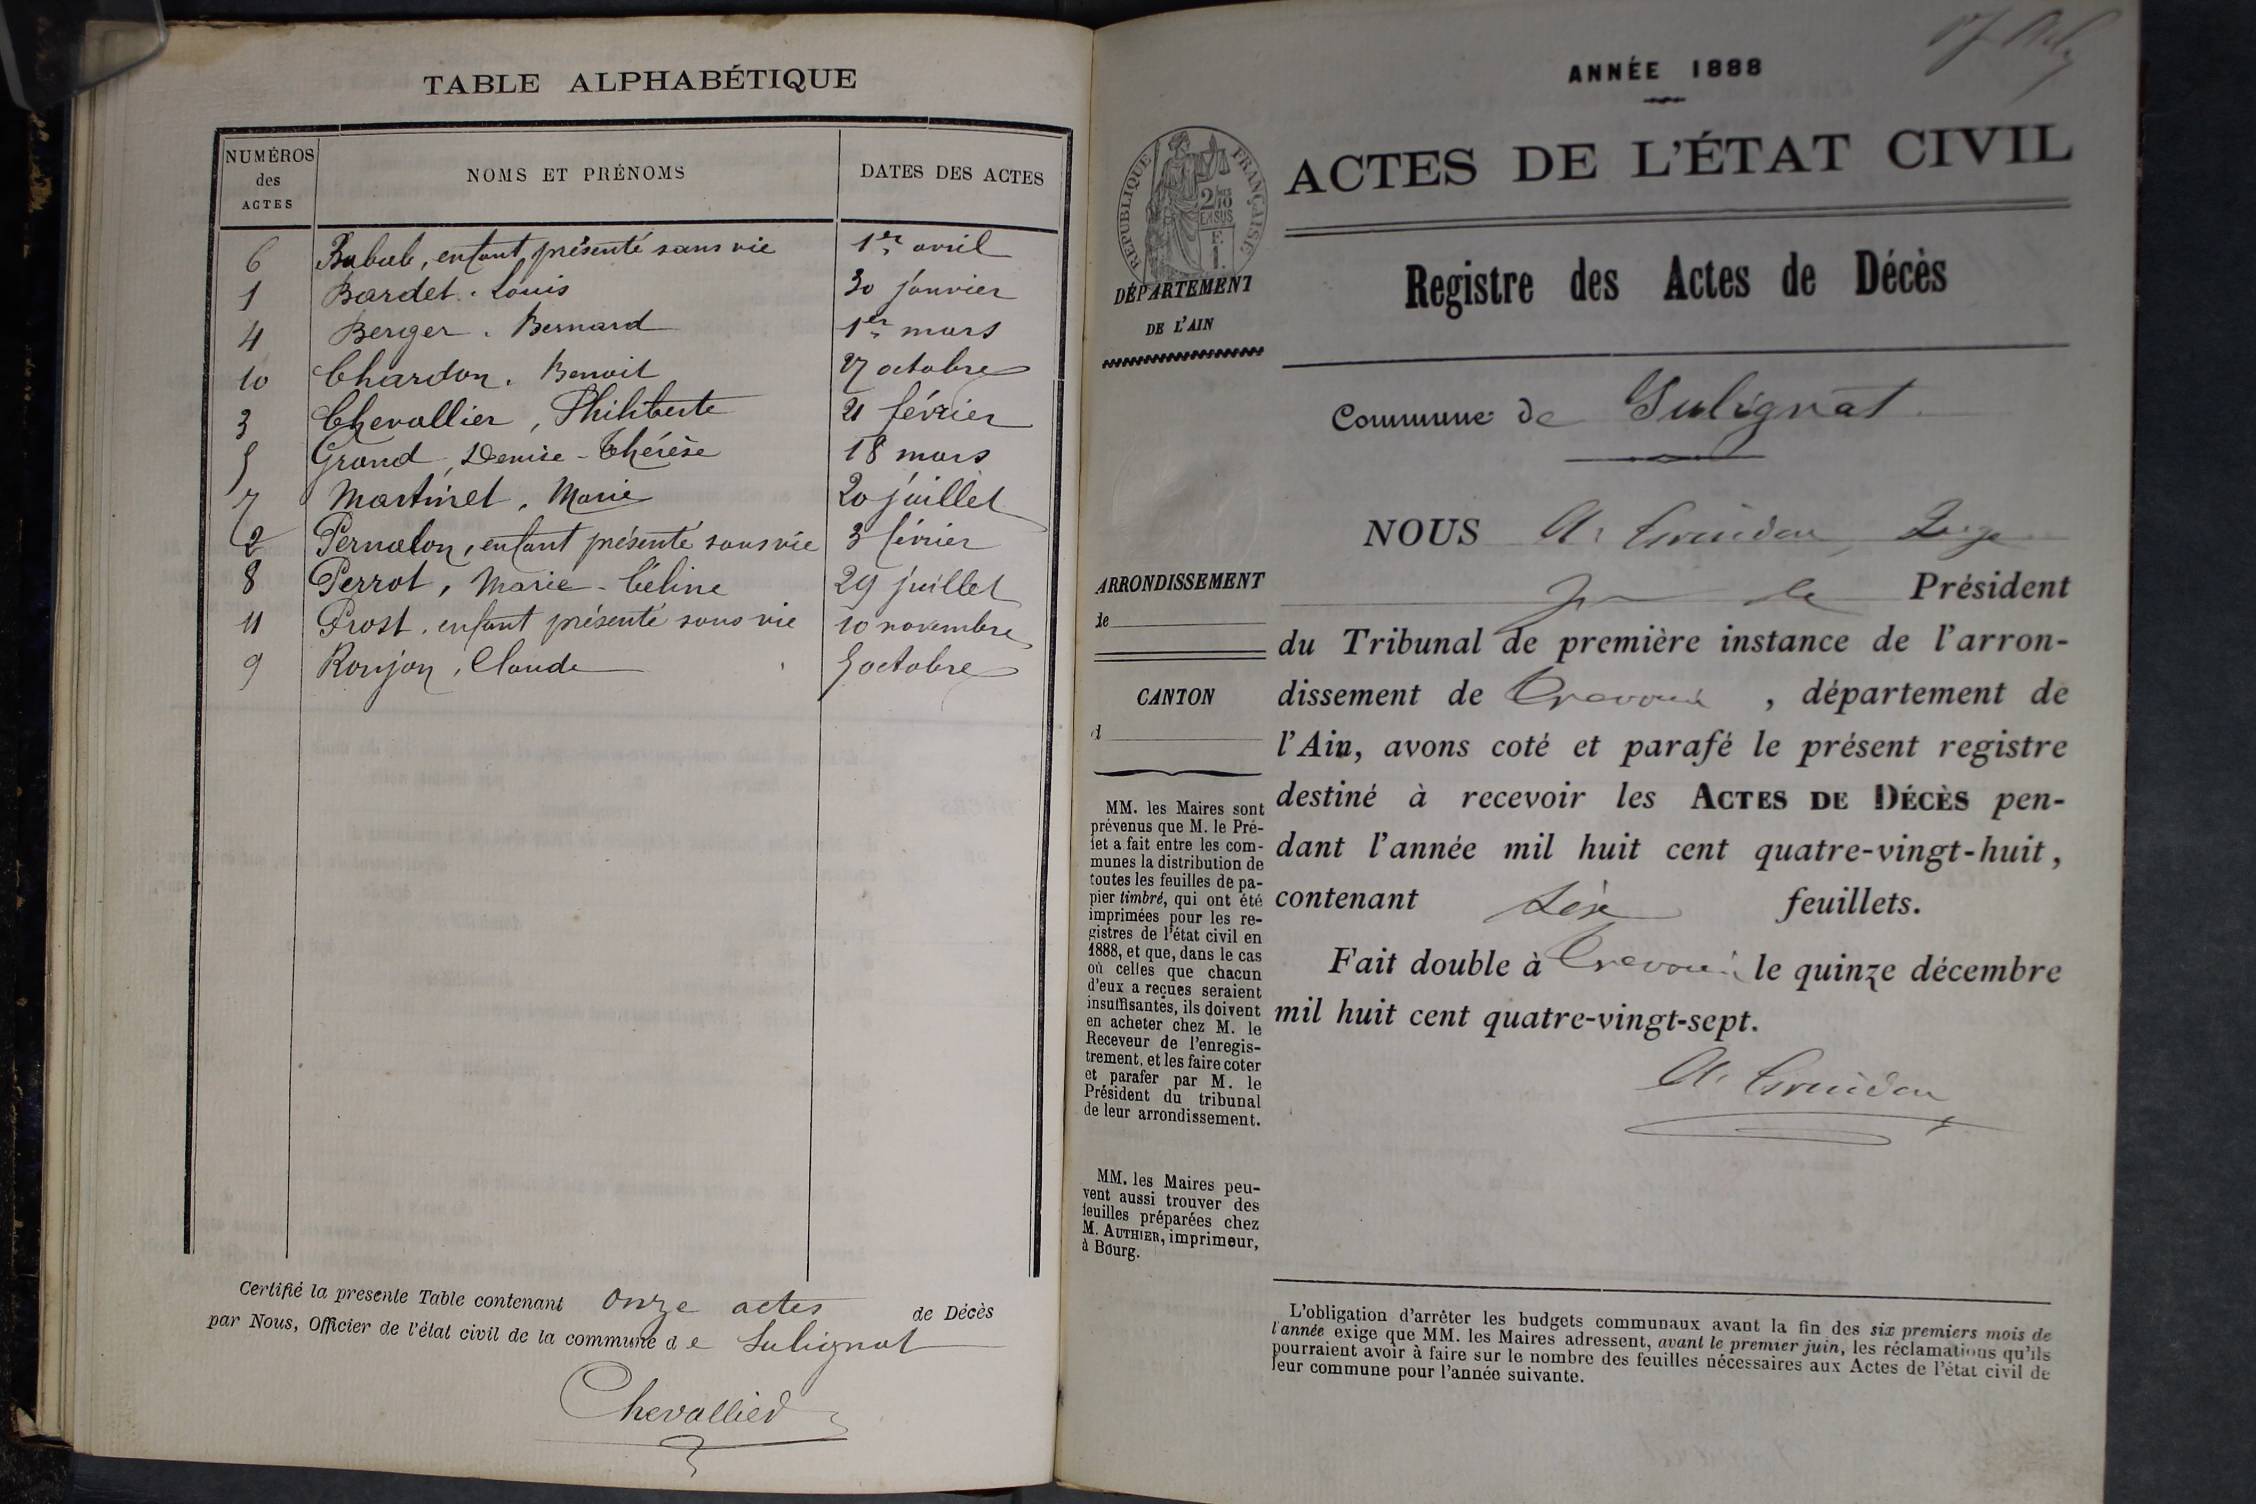 TABLE ALPHABÉTIQUE
NUMÉROS des ACTES
NOMS ET PRÉNOMS
DATES DES ACTES
6 enfant présenté sans vie 1er avril
1 Bardet. Louis 30 janvier
4 Berger. Bernard 1er mars
10 Chardon. Benoit 27 octobre
3 Chevallier, Philiberte 21 février
5 Grand, Denise-Thérèse 18 mars
7 Martinet, Marie 20 juillet
2 Pernalon, enfant présenté sans vie 3 février
8 Perrot, Marie-Céline 29 juillet
11 Prost, enfant présenté sans vie 10 novembre
9 Ronjon, Claude 5 octobre
Certifié la présente Table contenant onze actes de Décès
par Nous, Officier de l'état civil de la commune de Sulignat
Chevallier
ANNÉE 1888
ACTES DE L'ÉTAT CIVIL
RÉPUBLIQUE FRANÇAISE
2/10 EN SUS
DÉPARTEMENT
DE L'AIN
Registre des Actes de Décès
Commune de Sulignat
NOUS A. Juge
Président
ARRONDISSEMENT
de
du Tribunal de première instance de l'arron-
CANTON
d
dissement de Trévoux, département de
l'Ain, avons coté et parafé le présent registre
destiné à recevoir les ACTES DE DÉCÈS pen-
dant l'année mil huit cent quatre-vingt-huit,
contenant feuillets.
Fait double à Trévoux le quinze décembre
mil huit cent quatre-vingt-sept.
MM. les Maires sont
prévenus que M. le Pré-
fet a fait entre les com-
munes la distribution de
toutes les feuilles de pa-
pier timbré, qui ont été
imprimées pour les re-
gistres de l'état civil en
1888, et que, dans le cas
où celles que chacun
d'eux a reçues seraient
insuffisantes, ils doivent
en acheter chez M. le
Receveur de l'enregis-
trement, et les faire coter
et parafer par M. le
Président du tribunal
de leur arrondissement.
MM. les Maires peu-
vent aussi trouver des
feuilles préparées chez
M. AUTHIER, imprimeur,
à Bourg.
L'obligation d'arrêter les budgets communaux avant la fin des six premiers mois de
l'année exige que MM. les Maires adressent, avant le premier juin, les réclamations qu'ils
pourraient avoir à faire sur le nombre des feuilles nécessaires aux Actes de l'état civil de
leur commune pour l'année suivante.